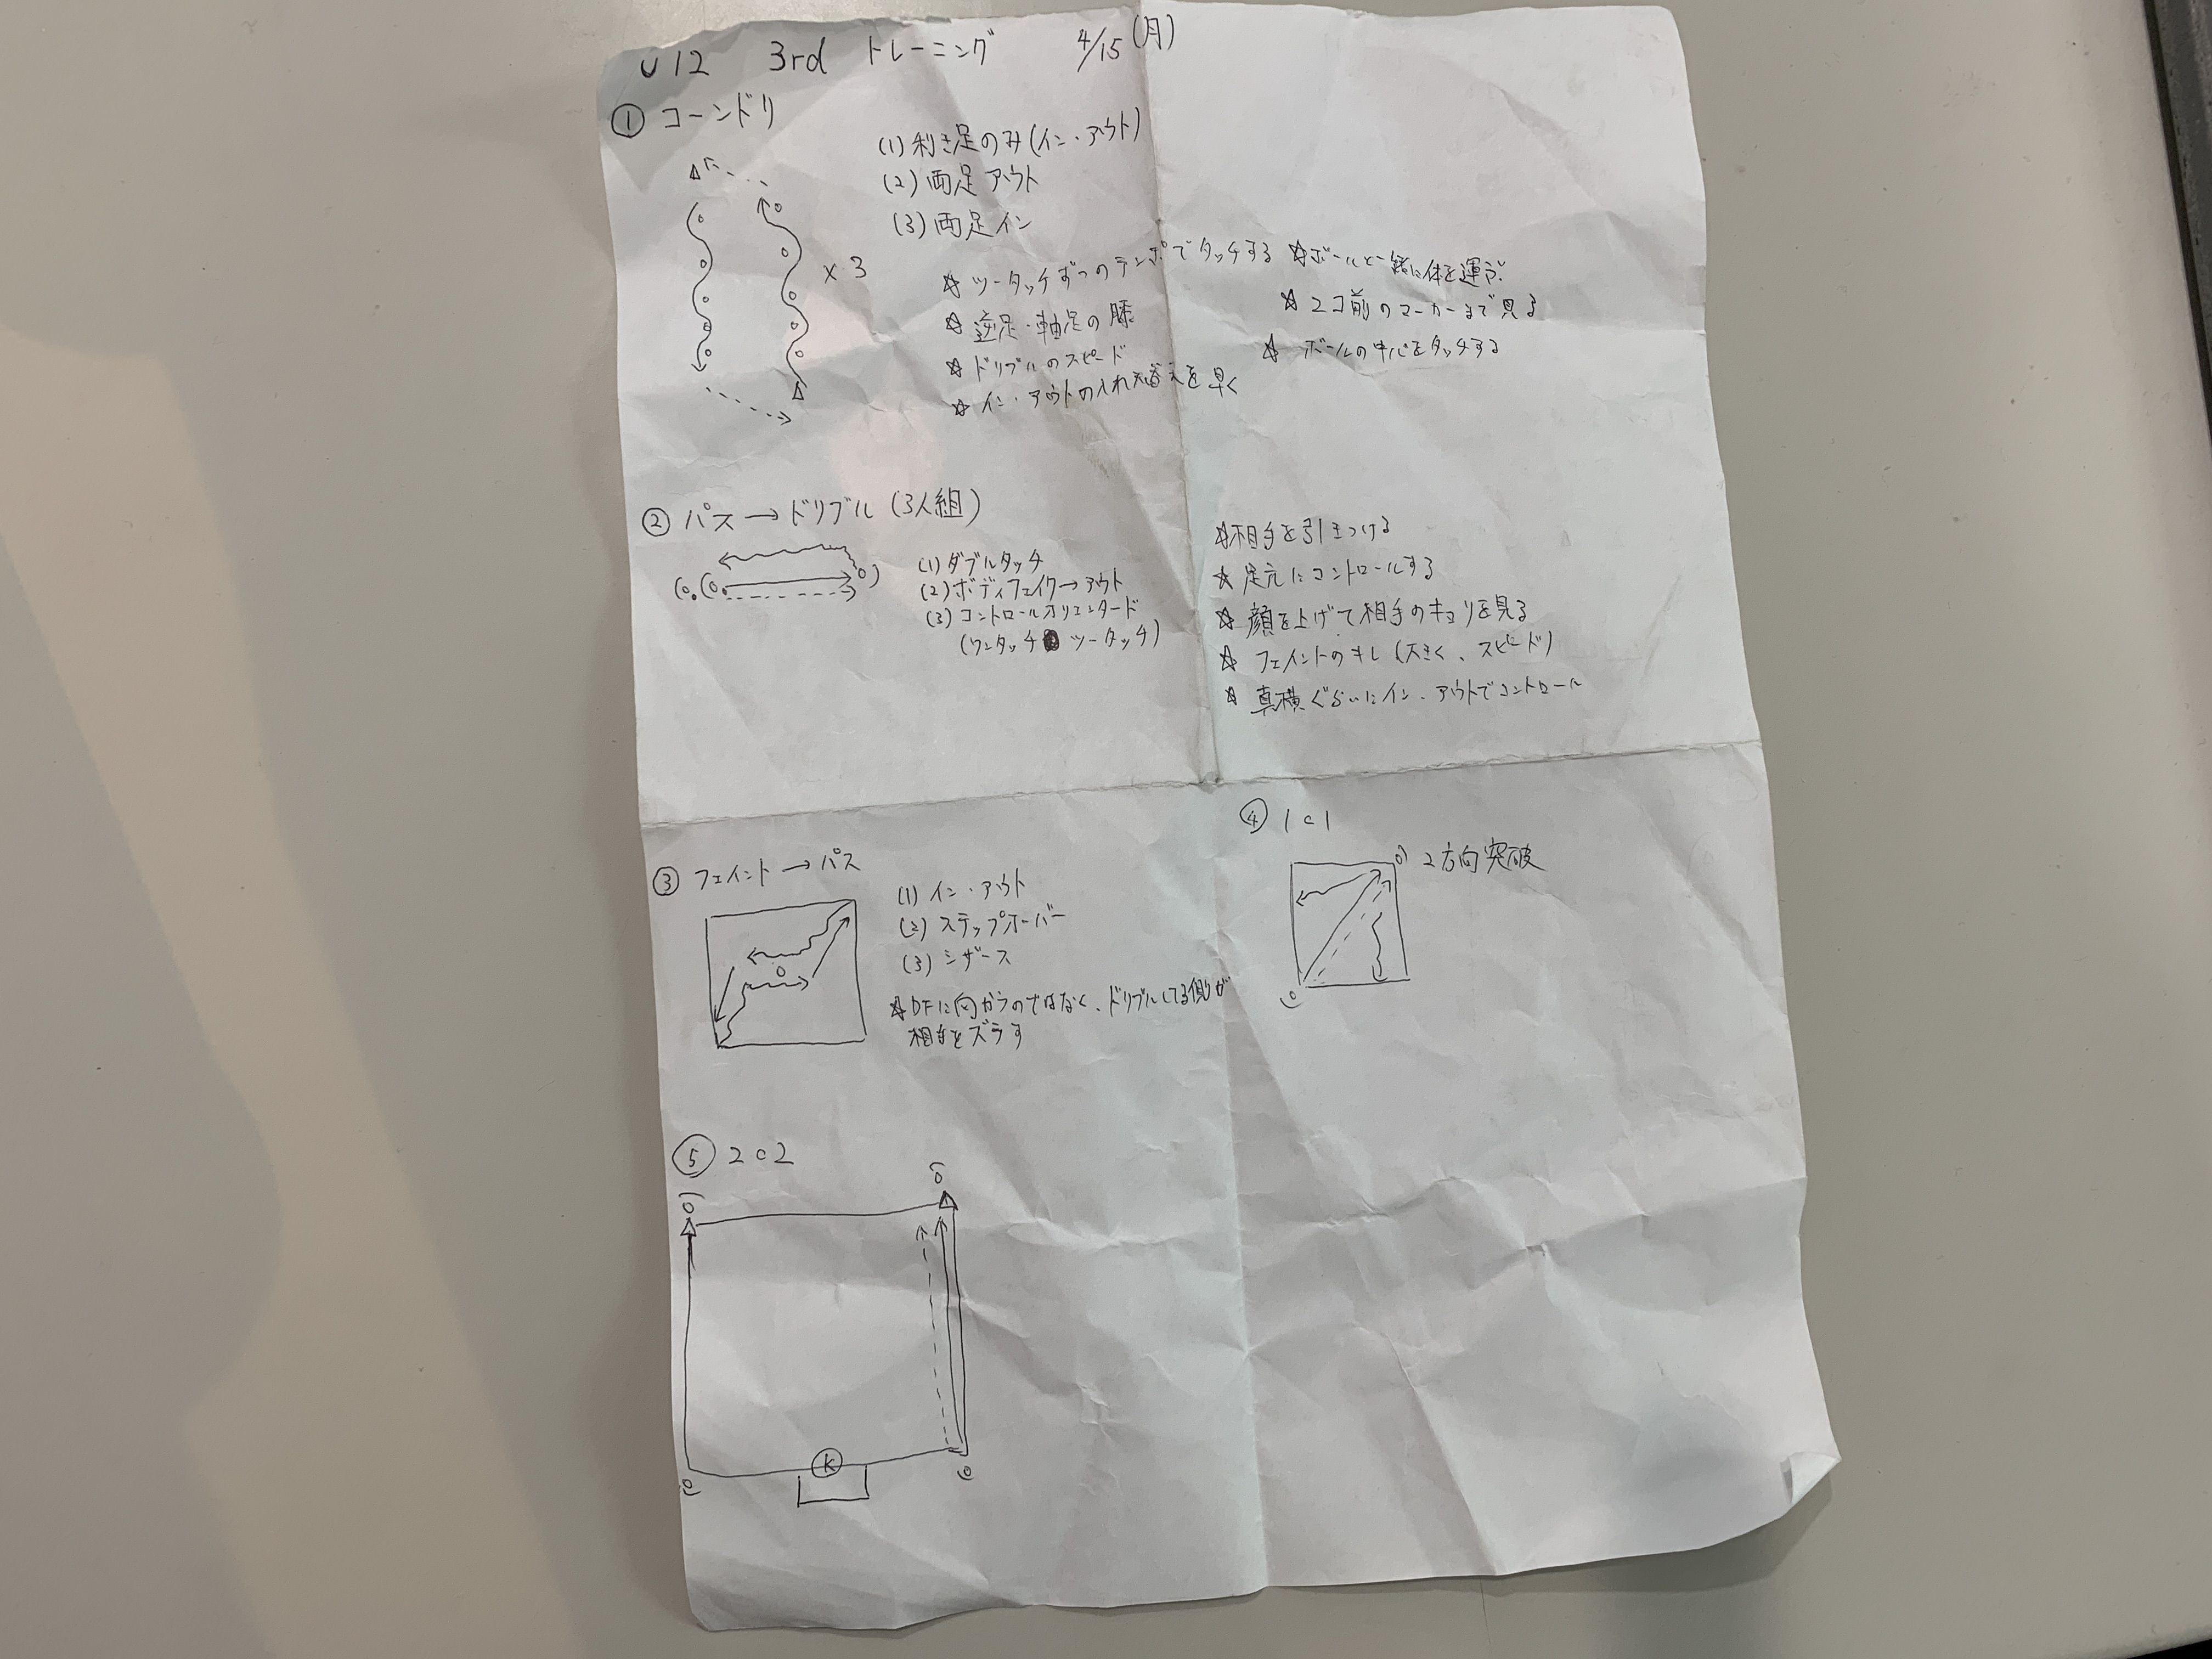 U12 3rd トレーニング 4/15(月)
① コーンドリ
(1) 利き足のみ(イン・アウト)
(2) 両足アウト
(3) 両足イン
×3
☆ ツータッチずつのテンポでタッチする
☆ 逆足・軸足の膝
☆ ドリブルのスピード
☆ イン・アウトの入れ替えを早く
☆ ボールと一緒に体を運ぶ
☆ 2コ前のマーカーまで見る
☆ ボールの中心をタッチする
② パス→ドリブル (3人組)
(1) ダブルタッチ
(2) ボディフェイク→アウト
(3) コントロールオリエンタード
(ワンタッチ ツータッチ)
☆ 相手を引きつける
☆ 足元にコントロールする
☆ 顔を上げて相手のキョリを見る
☆ フェイントのキレ (大きく、スピード)
☆ 真横ぐらいにイン・アウトでコントロール
③ フェイント→パス
(1) イン・アウト
(2) ステップオーバー
(3) シザース
☆ DFに向かうのではなく、ドリブルしてる側が
相手をズラす
④ 1c1
2方向突破
⑤ 2c2
K